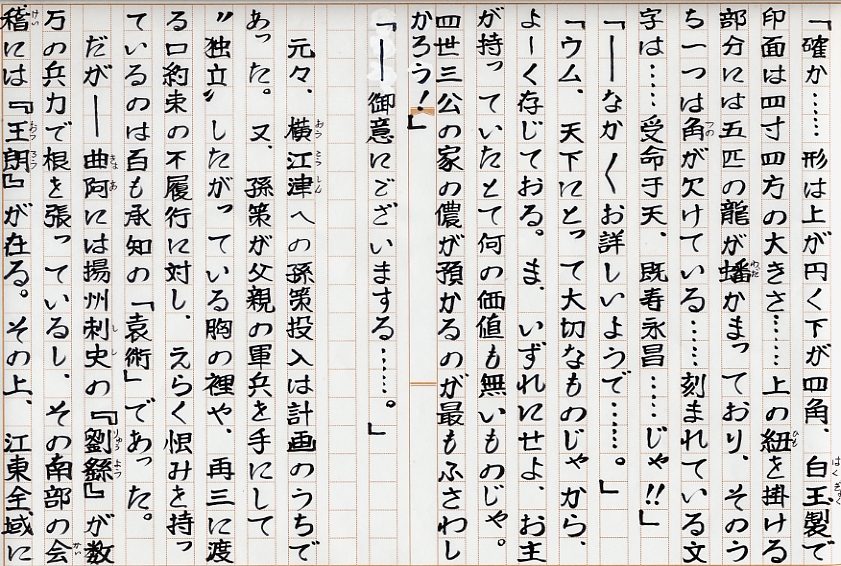 「確か……形は上が円く下が四角、白玉製で
印面は四寸四方の大きさ……上の紐を掛ける
部分には五匹の龍が蟠かまっており、そのう
ち一つは角が欠けている……刻まれている文
字は……受命于天、既寿永昌……じゃ!!」
「――なか〱お詳しいようで……。」
「ウム、天下にとって大切なものじゃから、
よーく存じておる。ま、いずれにせよ、お主
が持っていたとて何の価値も無いものじゃ。
四世三公の家の儂が預かるのが最もふさわし
かろう!」
「――御意にございまする……。」
元々、横江津への孫策投入は計画のうちで
あった。又、孫策が父親の軍兵を手にして
〝独立〟したがっている胸の裡や、再三に渡
る口約束の不履行に対し、えらく恨みを持っ
ているのは百も承知の「袁術」であった。
だが――曲阿には揚州刺史の『劉繇』が数
万の兵力で根を張っているし、その南部の会
稽には『王朗』が在る。その上、江東全域に